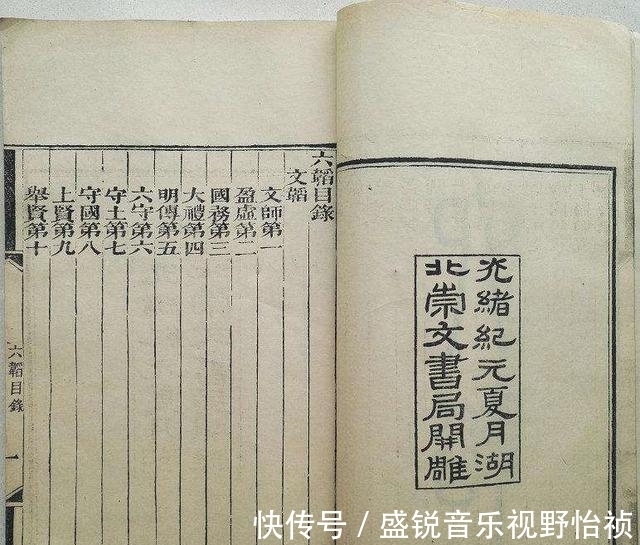 光緒紀元夏月湖
北崇文書局開雕
六韜目錄
文韜
文師第一
盈虛第二
國務第三
大禮第四
明傳第五
六守第六
守土第七
守國第八
上賢第九
舉賢第十
六韜目錄
一
快传号/盛锐音乐视野怡祯